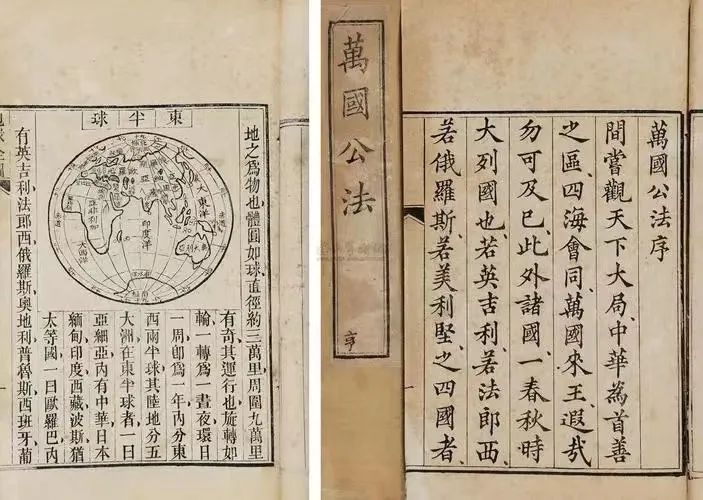 地之爲物也體圓如球直徑約三萬里周圍九萬里
東半球
大東洋
印度洋
大西洋
赤道
有奇其運行也旋轉如
輪一轉爲一晝夜環日
一周卽爲一年內分東
西兩半球其陸地分五
大洲在東半球者一曰
亞細亞內有中華日本
緬甸印度西藏波斯猶
太等國一曰歐羅巴內
有英吉利法郎西俄羅斯奧地利普魯斯西班牙葡
萬國公法
亨
萬國公法序
間嘗觀天下大局中華為首善
之區四海會同萬國來王遐哉
勿可及已此外諸國一春秋時
大列國也若英吉利若法郎西
若俄羅斯若美利堅之四國者